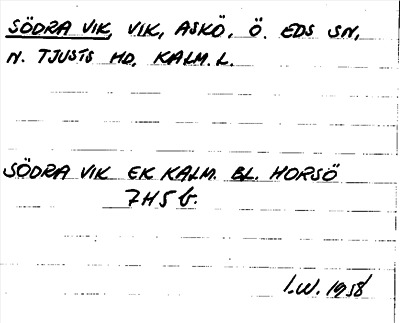 SÖDRA VIK, VIK, ASKÖ, Ö. EDS SN,
N. TJUSTS HD, KALM. L.
SÖDRA VIK EK KALM. BL. HORSÖ
7H5 b.
I.W. 1958